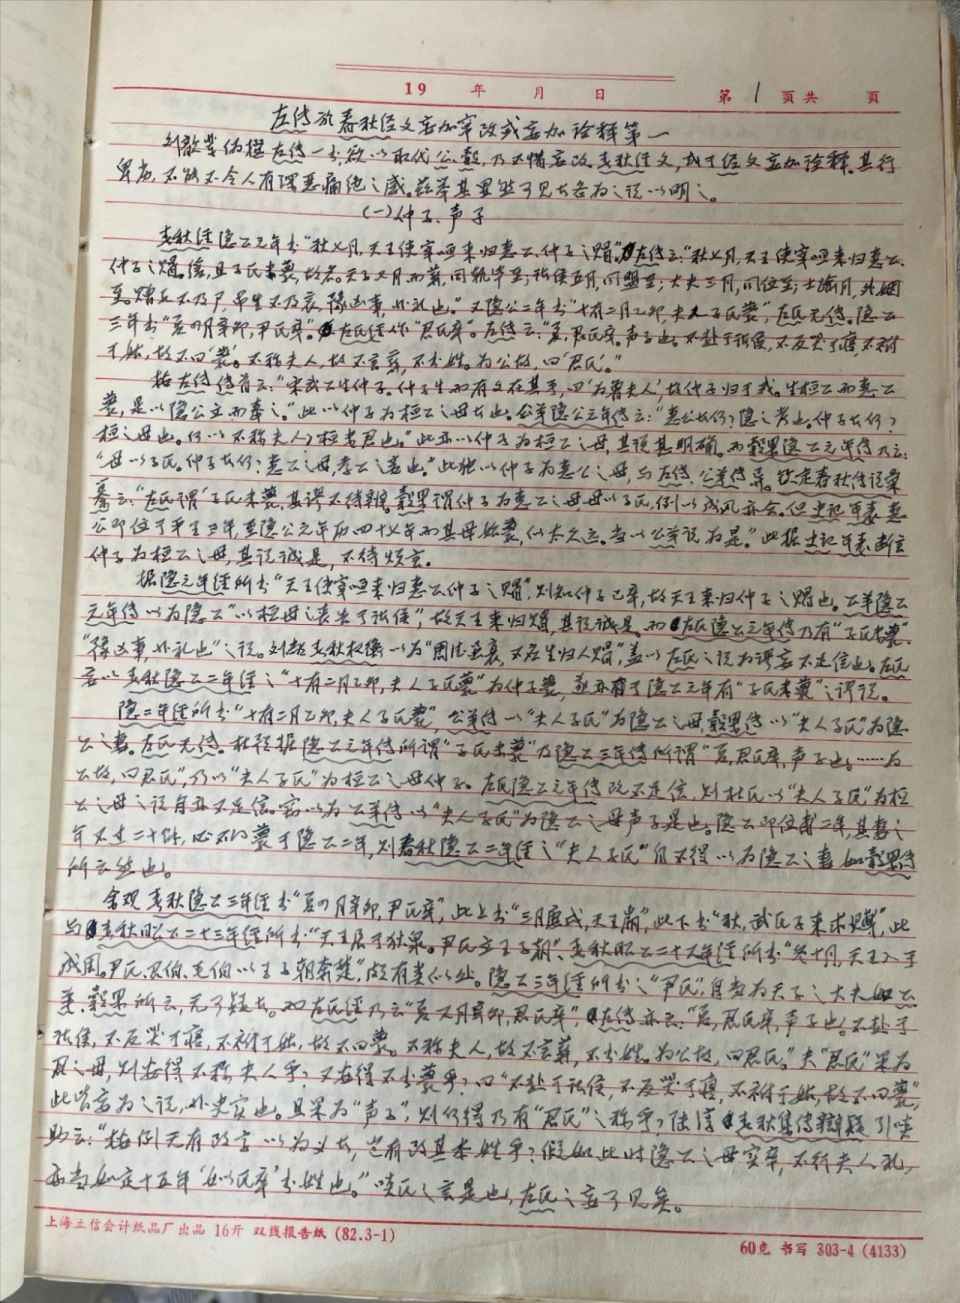 19 年 月 日 第 1 页共 页
左传于春秋经文妄加窜改或妄加诠释第一
刘歆等伪撰左传一书,欲以取代公、穀,乃不惜妄改春秋经文,或于经文妄加诠释。其行
卑劣,不能不令人有深恶痛绝之感。兹举其显然可见者各为之说以明之。
(一)仲子、声子
春秋经隐公元年书“秋七月,天王使宰咺来归惠公、仲子之赗。”左传云:“秋七月,天王使宰咺来归惠公、
仲子之赗,缓,且子氏未薨,故名。天子七月而葬,同轨毕至;诸侯五月,同盟至;大夫三月,同位至;士逾月,外姻
至。赠死不及尸,吊生不及哀,豫凶事,非礼也。”又隐公二年书“十有二月乙卯,夫人子氏薨”,左氏无传。隐公
三年书“夏四月辛卯,尹氏卒。”左氏经作“君氏卒”。左传云:“夏,君氏卒,声子也。不赴于诸侯,不反哭于寝,不祔
于姑,故不曰‘薨’。不称夫人,故不言葬,不书姓。为公故,曰‘君氏’。”
按左传传首云:“宋武公生仲子,仲子生而有文在其手,曰‘为鲁夫人’,故仲子归于我。生桓公而惠公
薨,是以隐公立而奉之。”此以仲子为桓公之母者也。公羊隐公元年传云:“惠公者何?隐之考也。仲子者何?
桓之母也。何以不称夫人?桓未君也。”此亦以仲子为桓公之母,其说甚明确。而穀梁隐公元年传乃云:
“母以子氏。仲子者何?惠公之母,孝公之妾也。”此独以仲子为惠公之母,与左传、公羊传异。钦定春秋传说汇
纂云:“左氏谓‘子氏未薨’,其谬不待辨。穀梁谓仲子为惠公之母,母以子氏,例以成风亦合。但史记年表惠
公即位于平王三年,至隐公元年历四十七年而其母始薨,似太久远。当以公羊说为是。”此据史记年表断言
仲子为桓公之母,其说诚是,不待烦言。
据隐元年经所书“天王使宰咺来归惠公仲子之赗”,则知仲子已卒,故天王来归仲子之赗也。公羊隐公
元年传以为隐公“以桓母之丧告于诸侯”,故天王来归赗,其说诚是。而左氏隐公元年传乃有“子氏未薨”、
“豫凶事,非礼也”之说。刘敞春秋权衡以为“周虽衰,不应生归人赗”,盖以左氏之说为谬妄不足信也。左氏
妄以春秋隐公二年经之“十有二月乙卯,夫人子氏薨”为仲子薨,故亦有于隐公元年有“子氏未薨”之谬说。
隐二年经所书“十有二月乙卯,夫人子氏薨”,公羊传以“夫人子氏”为隐公之母,穀梁传以“夫人子氏”为隐
公之妻。左氏无传。杜预据隐公元年传所谓“子氏未薨”及隐公三年传所谓“夏,君氏卒,声子也。……为
公故,曰君氏”,乃以“夫人子氏”为桓公之母仲子。左氏隐公元年传既不足信,则杜氏以“夫人子氏”为桓
公之母之说自亦不足信。窃以为公羊传以“夫人子氏”为隐公之母声子是也。隐公即位甫二年,其妻之
年不过二十许,必不得薨于隐公二年,则春秋隐公二年经之“夫人子氏”自不得以为隐公之妻如穀梁传
所云然也。
合观春秋隐公三年经书“夏四月辛卯,尹氏卒”,此上书“三月庚戌,天王崩”,此下书“秋,武氏子来求赙”,此
与春秋昭公二十三年经所书“天王居于狄泉。尹氏立王子朝”、春秋昭公二十六年经所书“冬十月,天王入于
成周。尹氏、召伯、毛伯以王子朝奔楚”,颇有类似处。隐公三年经所书之“尹氏”,自当为天子之大夫如公
羊、穀梁所云,无可疑者。而左氏经乃云“夏四月辛卯,君氏卒”,左传亦云:“夏,君氏卒,声子也。不赴于
诸侯,不反哭于寝,不祔于姑,故不曰薨。不称夫人,故不言葬,不书姓。为公故,曰君氏。”夫“君氏”果为
君之母,则安得不称夫人乎?又安得不书薨乎?曰“不赴于诸侯,不反哭于寝,不祔于姑,故不曰薨”,
此皆妄为之说,非史实也。且果为“声子”,则何得乃有“君氏”之称乎?陆淳春秋集传辩疑引啖
助云:“按例无有改字以为义者,岂有改其本姓乎?假如此时隐公之母实卒,不行夫人礼,
亦当如定十五年‘姒氏卒’书姓也。”啖氏之言是也,左氏之妄可见矣。
上海立信会计纸品厂出品 16开 双线报告纸 (82.3-1)
60克 书写 303-4 (4133)